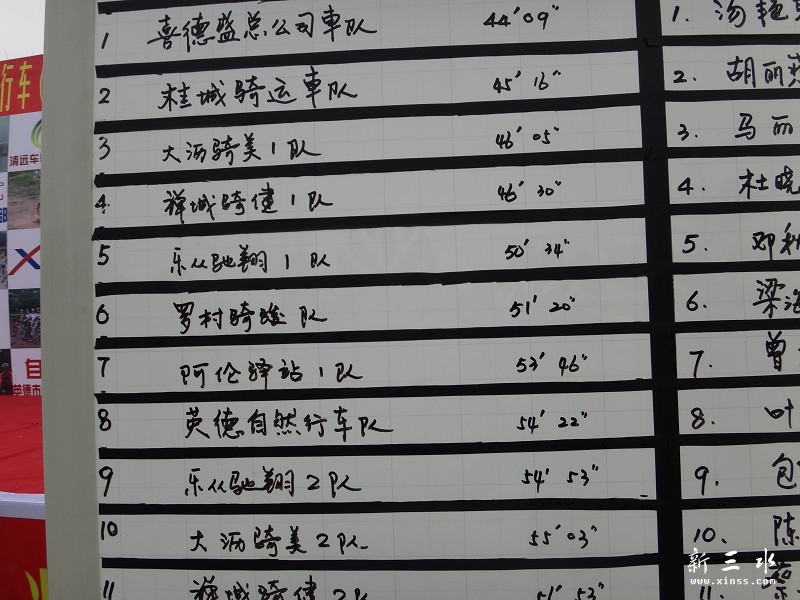 1 喜德盛总公司车队 44′09″
2 桂城骑运车队 45′16″
3 大沥骑美1队 46′05″
4 禅城骑健1队 46′30″
5 乐从驰翔1队 50′34″
6 罗村骑骏队 51′20″
7 阿伦驿站1队 53′46″
8 英德自然行车队 54′22″
9 乐从驰翔2队 54′53″
10 大沥骑美2队 55′03″
11 禅城骑健2队
1. 汤艳
2. 胡丽英
3. 马丽
4. 杜晓
5. 邓秋
6. 梁
7. 曾
8. 叶
9. 包
10. 陈
11.
行车
清远车
英德市
新三水
www.xinss.com